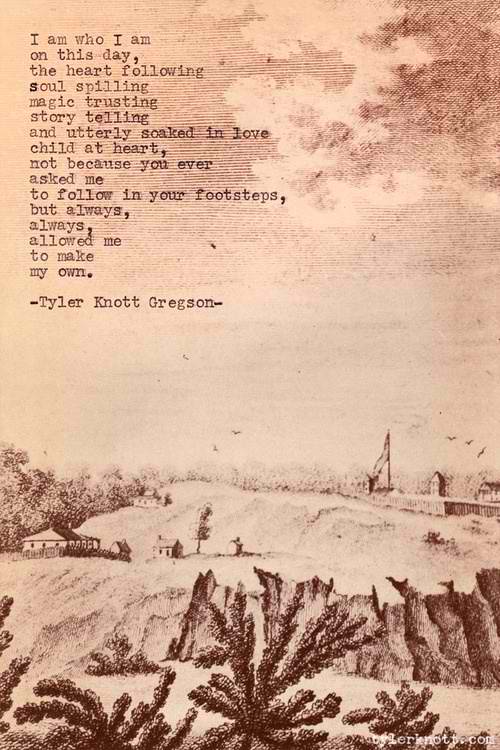 I am who I am
on this day,
the heart following
soul spilling
magic trusting
story telling
and utterly soaked in love
child at heart,
not because you ever
asked me
to follow in your footsteps,
but always,
always,
allowed me
to make
my own.
-Tyler Knott Gregson-
tylerknott.com